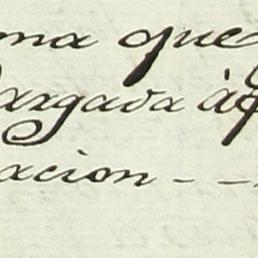 ma que
argada à
acion - -